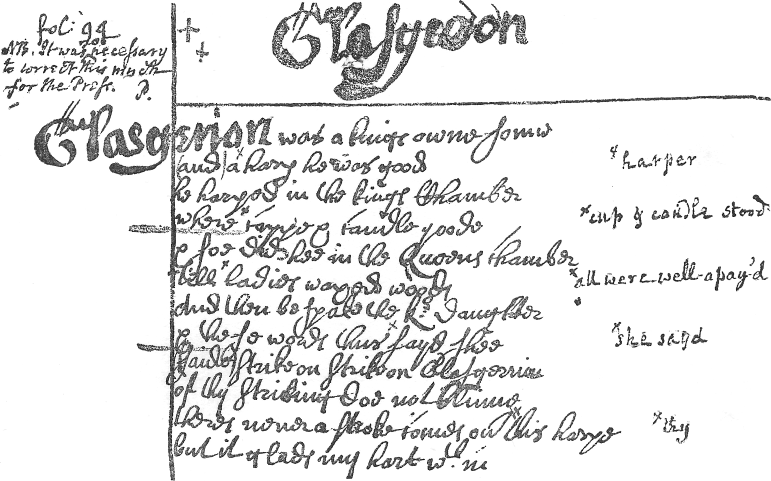 fol: 94
NB. It was necessary
to correct this much
for the Press. P.
Glasgerion
Glasgerion was a kings owne sonne
and a harp he was good *harper
he harped in the kings chamber
where cappe & candle yoode *cup & candle stood
& soe did hee in the Queens chamber
till ladies waxed wood *all were well-apay'd
And then bespake the kgs daughter
& these words thus sayd shee *she sayd
saide strike on strike on Glasgerrion
of thy striking doe not blinne
theres never a stroke comes on this harpe *thy
but it glads my hart wth in